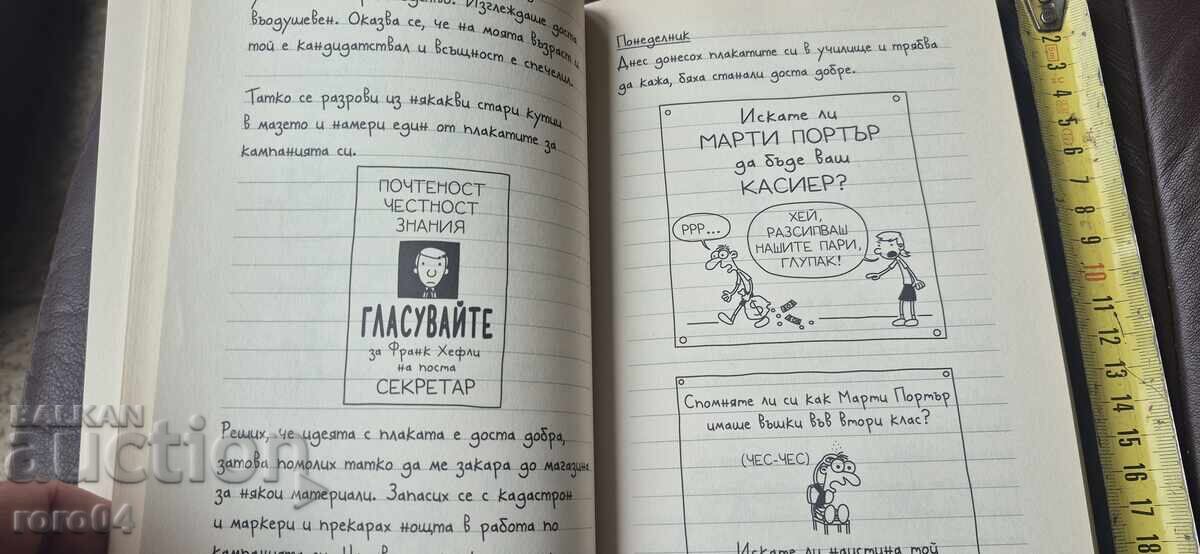 Изглеждаше доста
въодушевен. Оказва се, че на моята възраст и
той е кандидатствал и всъщност е спечелил.
Татко се разрови из някакви стари кутии
в мазето и намери един от плакатите за
кампанията си.
ПОЧТЕНОСТ
ЧЕСТНОСТ
ЗНАНИЯ
ГЛАСУВАЙТЕ
за Франк Хефли
на поста
СЕКРЕТАР
Реших, че идеята с плаката е доста добра,
затова помолих татко да ме закара до магазина
за някои материали. Запасих се с кадастрон
и маркери и прекарах нощта в работа по
Понеделник
Днес донесох плакатите си в училище и трябва
да кажа, бяха станали доста добре.
Искате ли
МАРТИ ПОРТЪР
да бъде ваш
КАСИЕР?
РРР...
ХЕЙ,
РАЗСИПВАШ
НАШИТЕ ПАРИ,
ГЛУПАК!
$
Спомняте ли си как Марти Портър
имаше въшки във втори клас?
(ЧЕС-ЧЕС)
Искате ли наистина той
2
3
4
5
6
7
8
9
10
11
12
13
14
15
16
17
18
BALKAN
auction
roro04